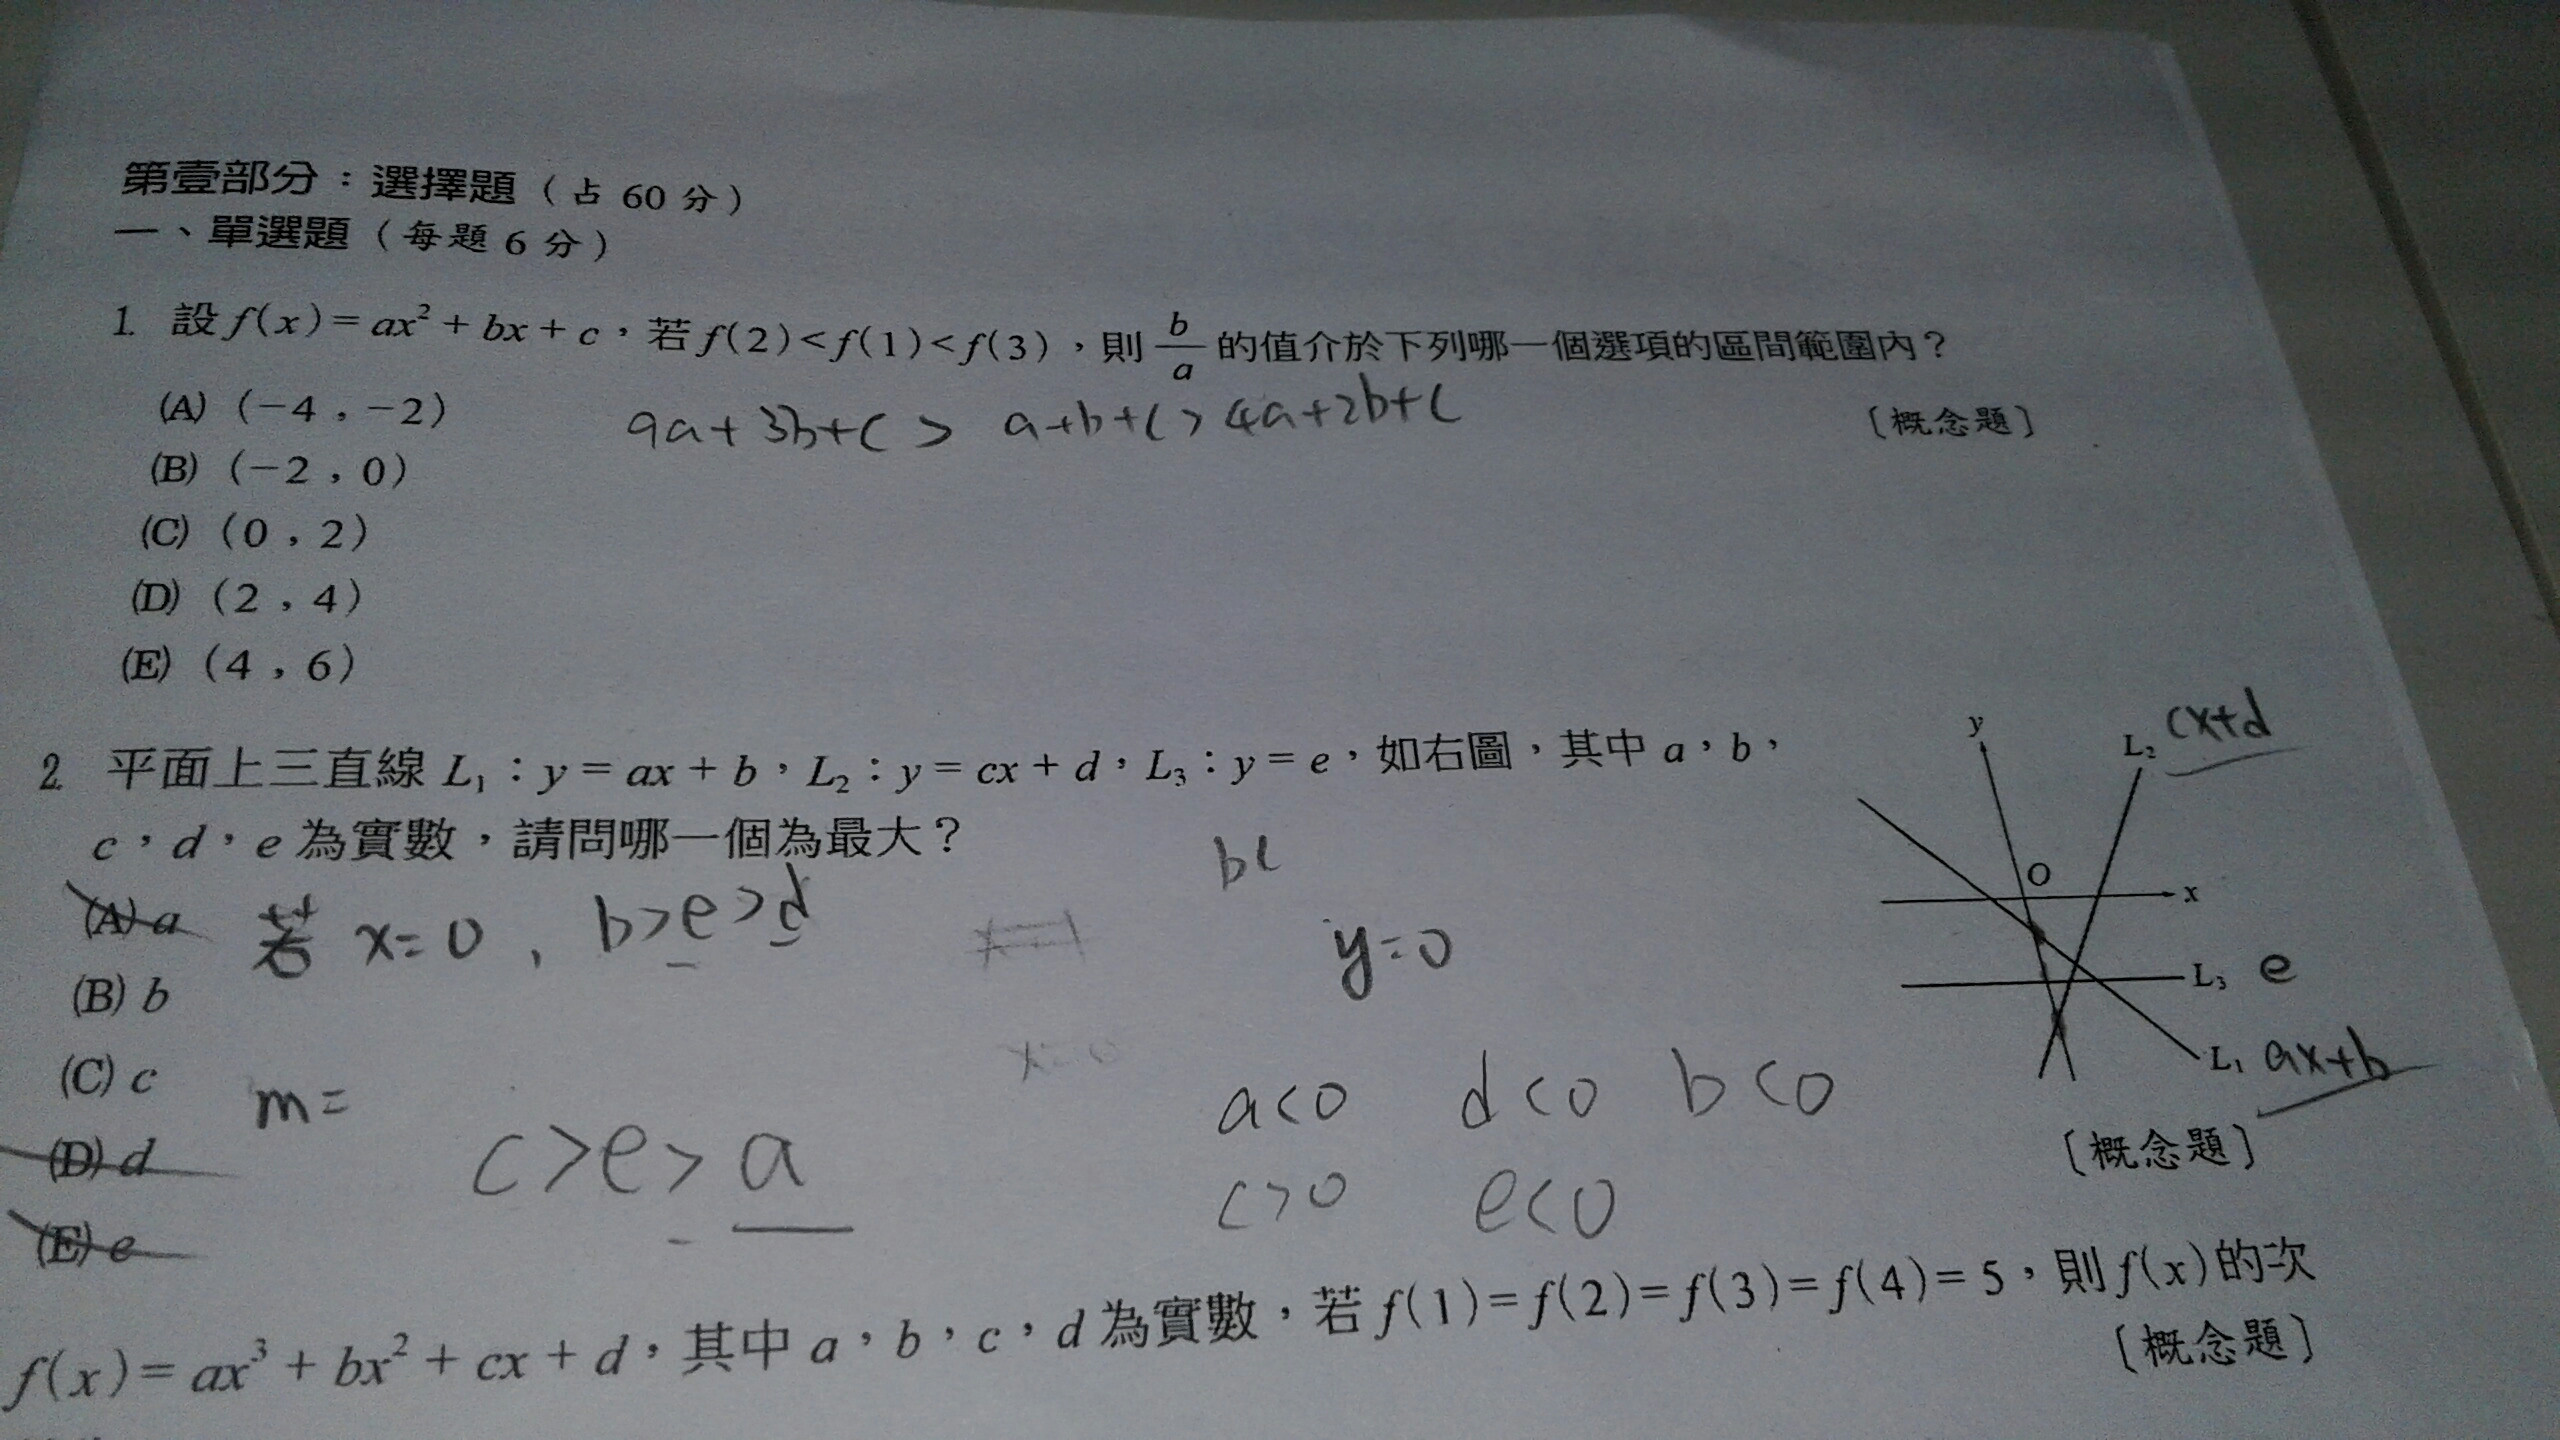 第壹部分：選擇題（占 60 分）
一、單選題（每題 6 分）
1. 設 f(x)=ax²+bx+c，若 f(2)<f(1)<f(3)，則 b/a 的值介於下列哪一個選項的區間範圍內？
(A) (−4，−2)
9a+3b+c > a+b+c > 4a+2b+c
〔概念題〕
(B) (−2，0)
(C) (0，2)
(D) (2，4)
(E) (4，6)
2. 平面上三直線 L₁：y=ax+b，L₂：y=cx+d，L₃：y=e，如右圖，其中 a，b，
c，d，e 為實數，請問哪一個為最大？
y
L₂ cx+d
O
x
L₃ e
L₁ ax+b
(A) a
若 x=0，b>e>d
x=1
y=0
(B) b
(C) c
m=
x=0
a<0 d<0 b<0
〔概念題〕
(D) d
c>e>a
c>0 e<0
(E) e
f(x)=ax³+bx²+cx+d，其中 a，b，c，d 為實數，若 f(1)=f(2)=f(3)=f(4)=5，則 f(x) 的次
〔概念題〕